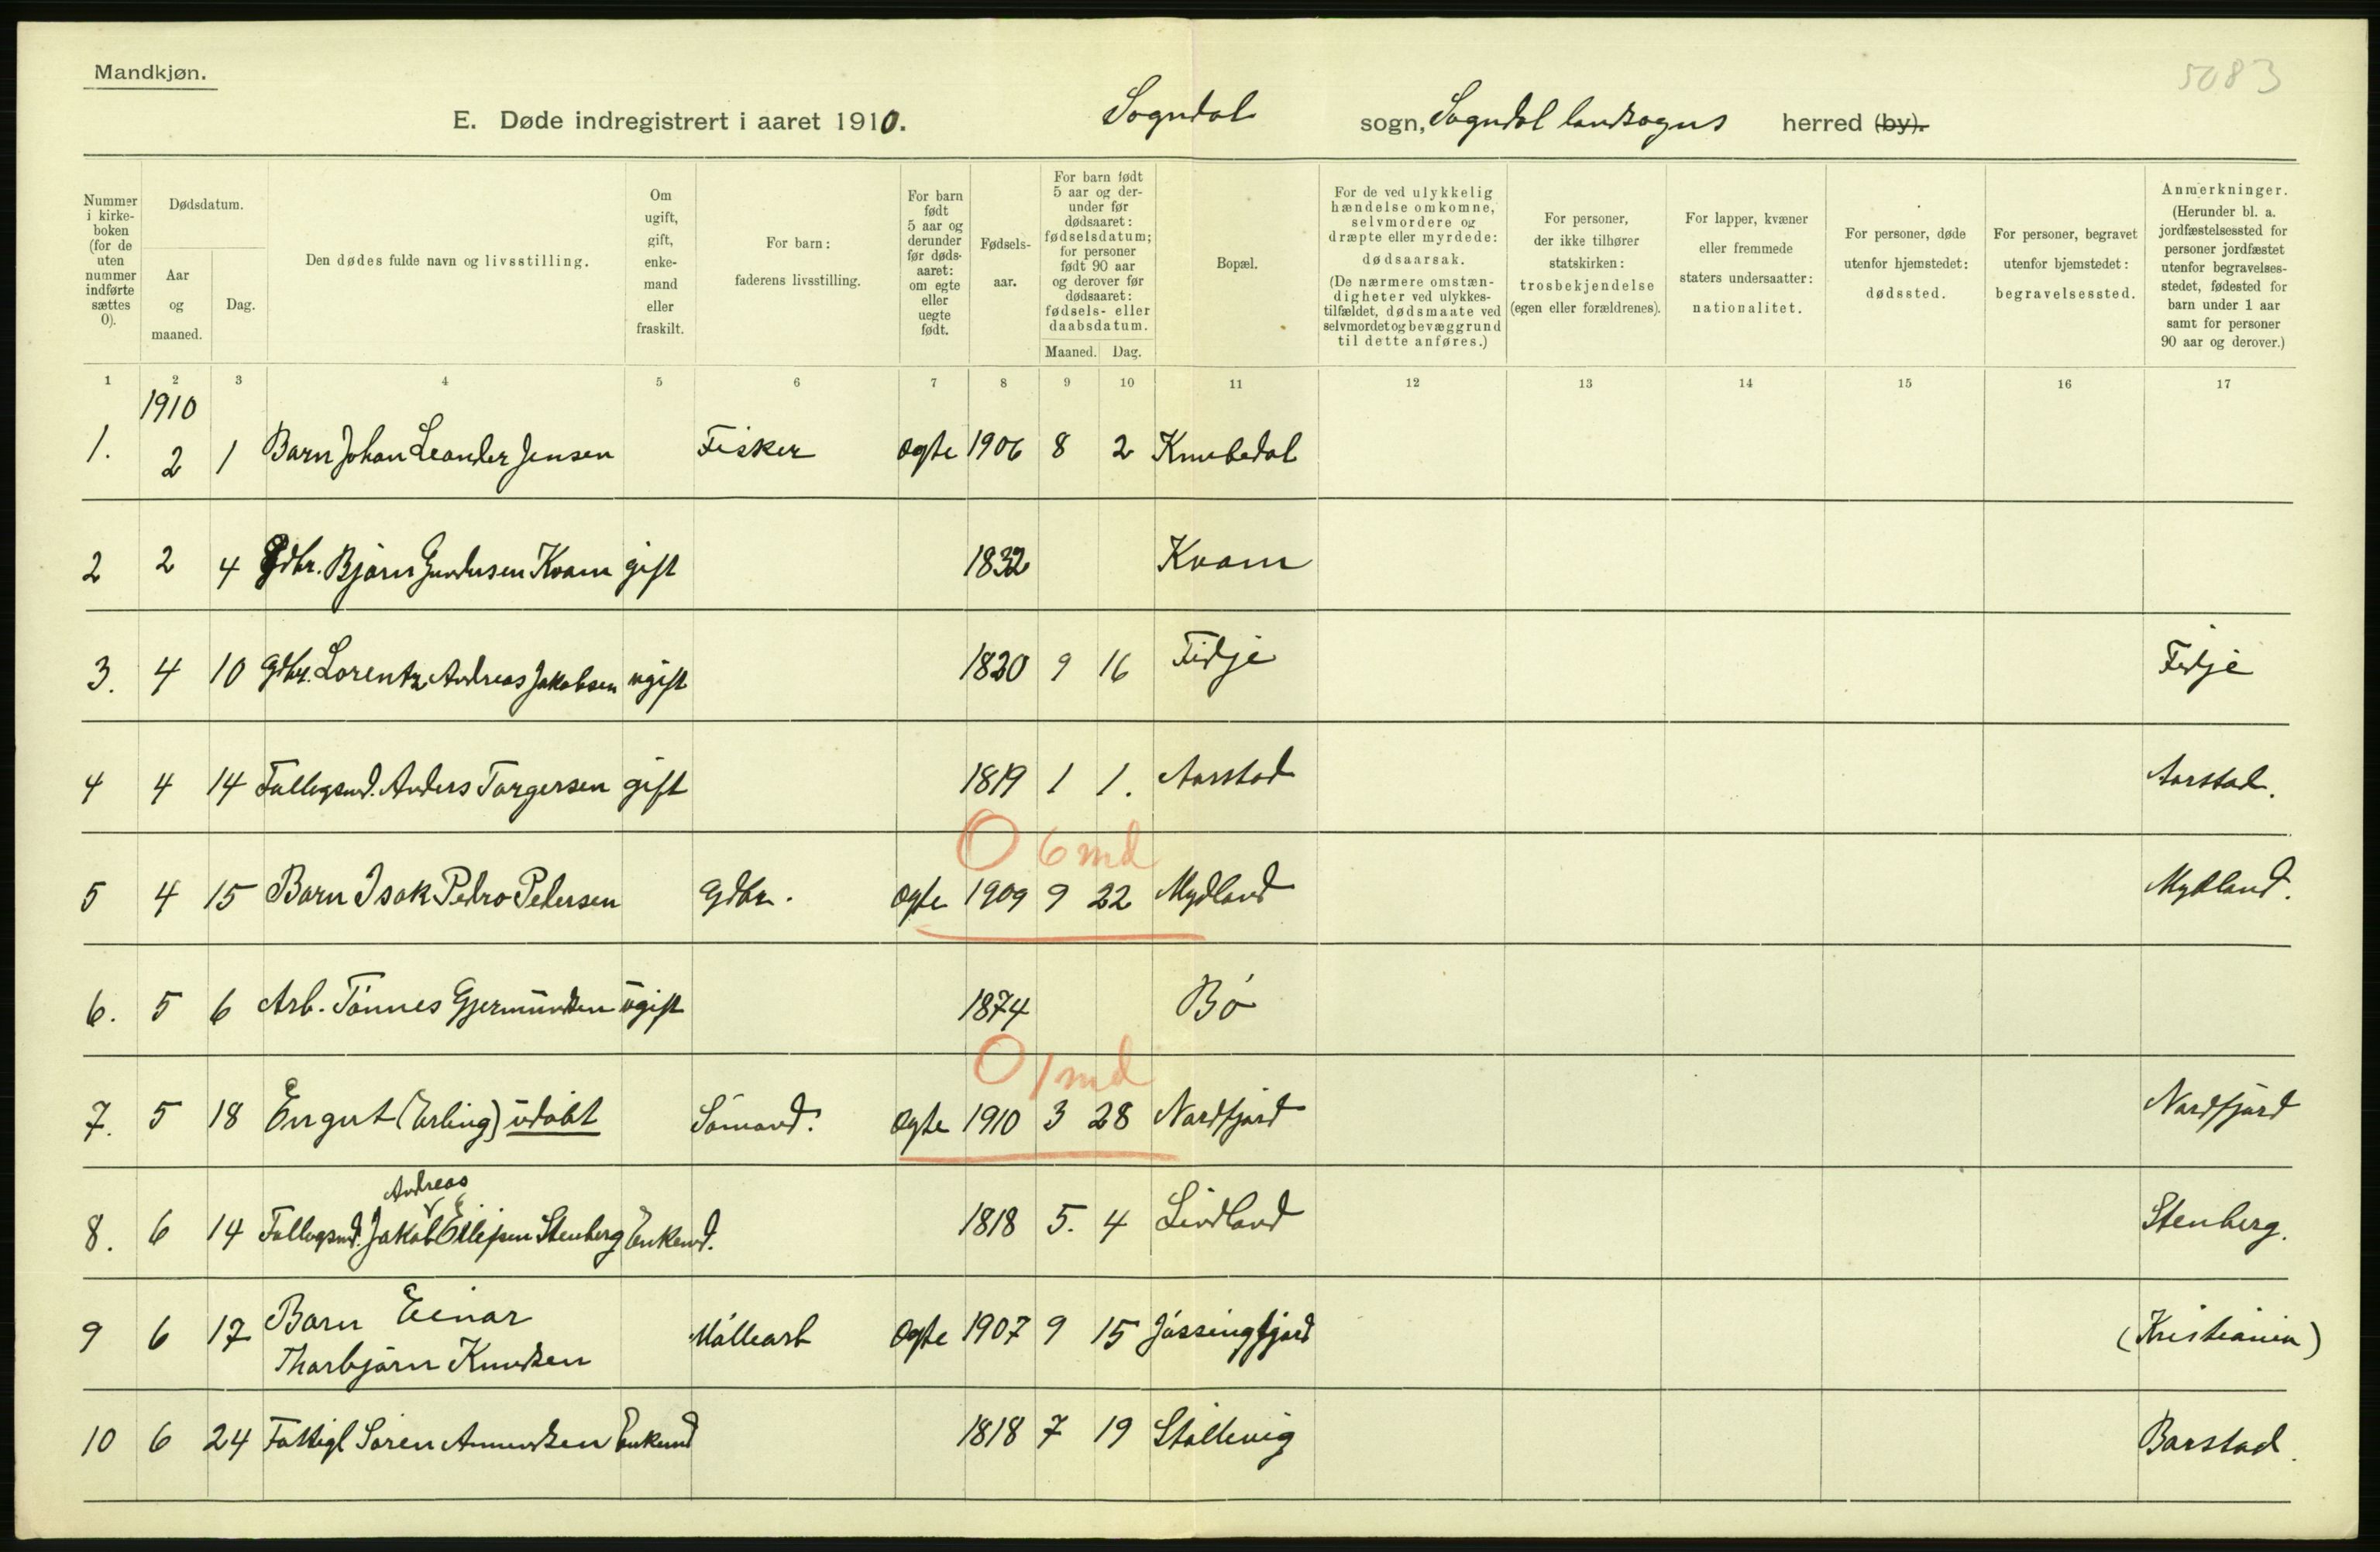 Mandkjøn.
5083
E. Døde indregistrert i aaret 1910. Sogndal sogn, Sogndal landsogns herred (by).
Nummer i kirkeboken (for de uten nummer indførte sættes 0).
Dødsdatum.
Aar og maaned.
Dag.
Den dødes fulde navn og livsstilling.
Om ugift, gift, enkemand eller fraskilt.
For barn: faderens livsstilling.
For barn født 5 aar og derunder før dødsaaret: om egte eller uegte født.
Fødselsaar.
For barn født 5 aar og derunder før dødsaaret: fødselsdatum; for personer født 90 aar og derover før dødsaaret: fødsels- eller daabsdatum.
Maaned. Dag.
Bopæl.
For de ved ulykkelig hændelse omkomne, selvmordere og dræpte eller myrdede: dødsaarsak. (De nærmere omstændigheter ved ulykkestilfældet, dødsmaate ved selvmordet og bevæggrund til dette anføres.)
For personer, der ikke tilhører statskirken: trosbekjendelse (egen eller forældrenes).
For lapper, kvæner eller fremmede staters undersaatter: nationalitet.
For personer, døde utenfor hjemstedet: dødssted.
For personer, begravet utenfor bjemstedet: begravelsessted.
Anmerkninger. (Herunder bl. a. jordfæstelsessted for personer jordfæstet utenfor begravelsesstedet, fødested for barn under 1 aar samt for personer 90 aar og derover.)
1 2 3 4 5 6 7 8 9 10 11 12 13 14 15 16 17
1910
1. 2 1 Barn Johan Leander Jensen Fisker Ogte 1906 8 2 Knubedal
2 2 4 Gdbr. Bjørn Gundersen Kvam gift 1832 Kvam
3. 4 10 Gdbr. Lorentz Andreas Jakobsen ugift 1820 9 16 Fidje Fidje
4 4 14 Follogsmd. Anders Torgersen gift 1819 1 1. Aarstad Aarstad.
0 6 md
5 4 15 Barn Isak Pedro Pedersen Gdbr. Ogte 1909 9 22 Mydland Mydland.
6. 5 6 Arb. Tønnes Gjermundsen ugift 1874 Bø
0 1 md
7. 5 18 Engut (Erling) udøbt Sømand. Ogte 1910 3 28 Nordfjord Nordfjord
Andreas
8. 6 14 Follogsmd. Jakob Ellefsen Stenberg Enkemd. 1818 5. 4 Lindland Stenberg.
9 6 17 Barn Einar Møllearb Ogte 1907 9 15 Jøssingfjord (Kristiania)
Thorbjørn Knudsen
10 6 24 Fattigl Søren Amundsen Enkemd 1818 7 19 Støllevig Barstad.